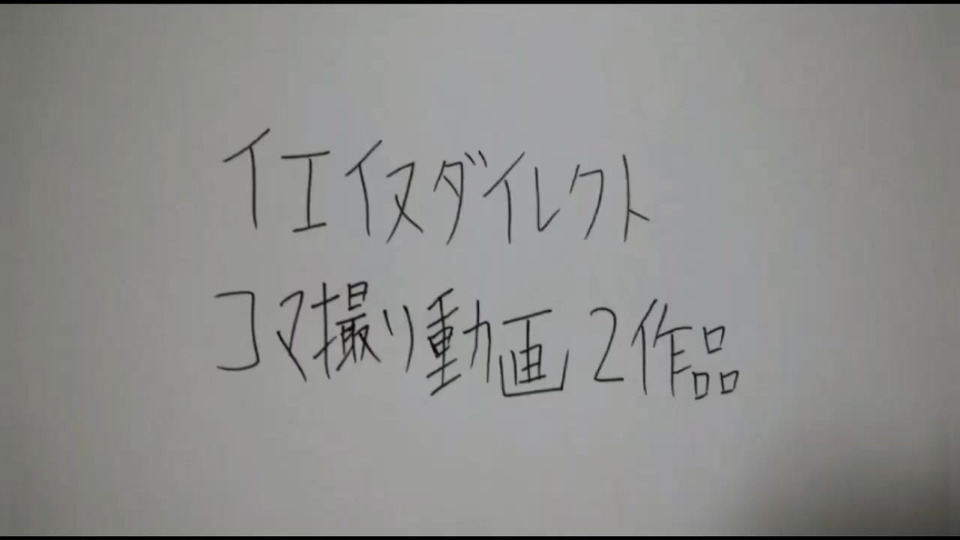 イエイヌダイレクト
コマ撮り動画2作品